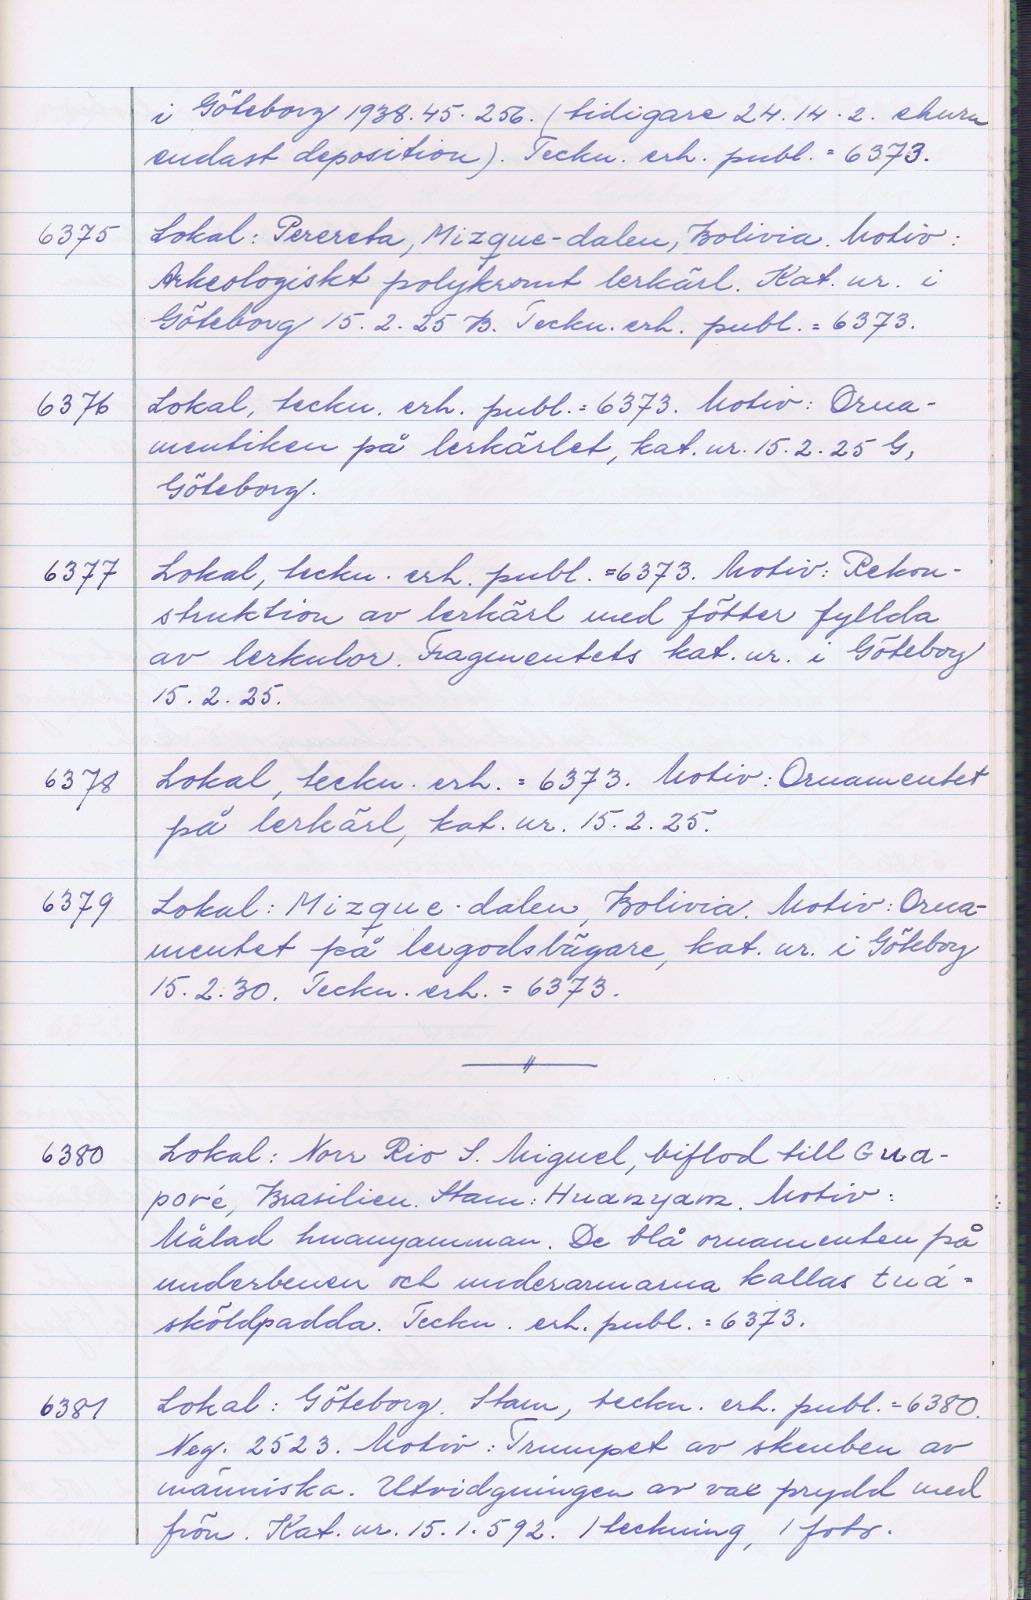 i Göteborg 1938.45.256. (tidigare 24.14.2. ehuru
endast deposition). Teckn. erh. publ. = 6373.
6375 Lokal: Perereta, Mizque-dalen, Bolivia. Motiv:
Arkeologiskt polykromt lerkärl. Kat. nr. i
Göteborg 15.2.25 B. Teckn. erh. publ. = 6373.
6376 Lokal, teckn. erh. publ. = 6373. Motiv: Orna-
mentiken på lerkärlet, kat. nr. 15.2.25 G,
Göteborg.
6377 Lokal, teckn. erh. publ. = 6373. Motiv: Rekon-
struktion av lerkärl med fötter fyllda
av lerkulor. Fragmentets kat. nr. i Göteborg
15.2.25.
6378 Lokal, teckn. erh. = 6373. Motiv: Ornamentet
på lerkärl, kat. nr. 15.2.25.
6379 Lokal: Mizque-dalen, Bolivia. Motiv: Orna-
mentet på lergodsbägare, kat. nr. i Göteborg
15.2.30. Teckn. erh. = 6373.
6380 Lokal: Norr Rio S. Miguel, biflod till Gua-
poré, Brasilien. Stam: Huanyam. Motiv:
Målad huanyamman. De blå ornamenten på
underbenen och underarmarna kallas tuá =
sköldpadda. Teckn. erh. publ. = 6373.
6381 Lokal: Göteborg. Stam, teckn. erh. publ. = 6380.
Neg. 2523. Motiv: Trumpet av skenben av
människa. Utvidgningen av vax prydd med
frön. Kat. nr. 15.1.592. 1 teckning, 1 foto.